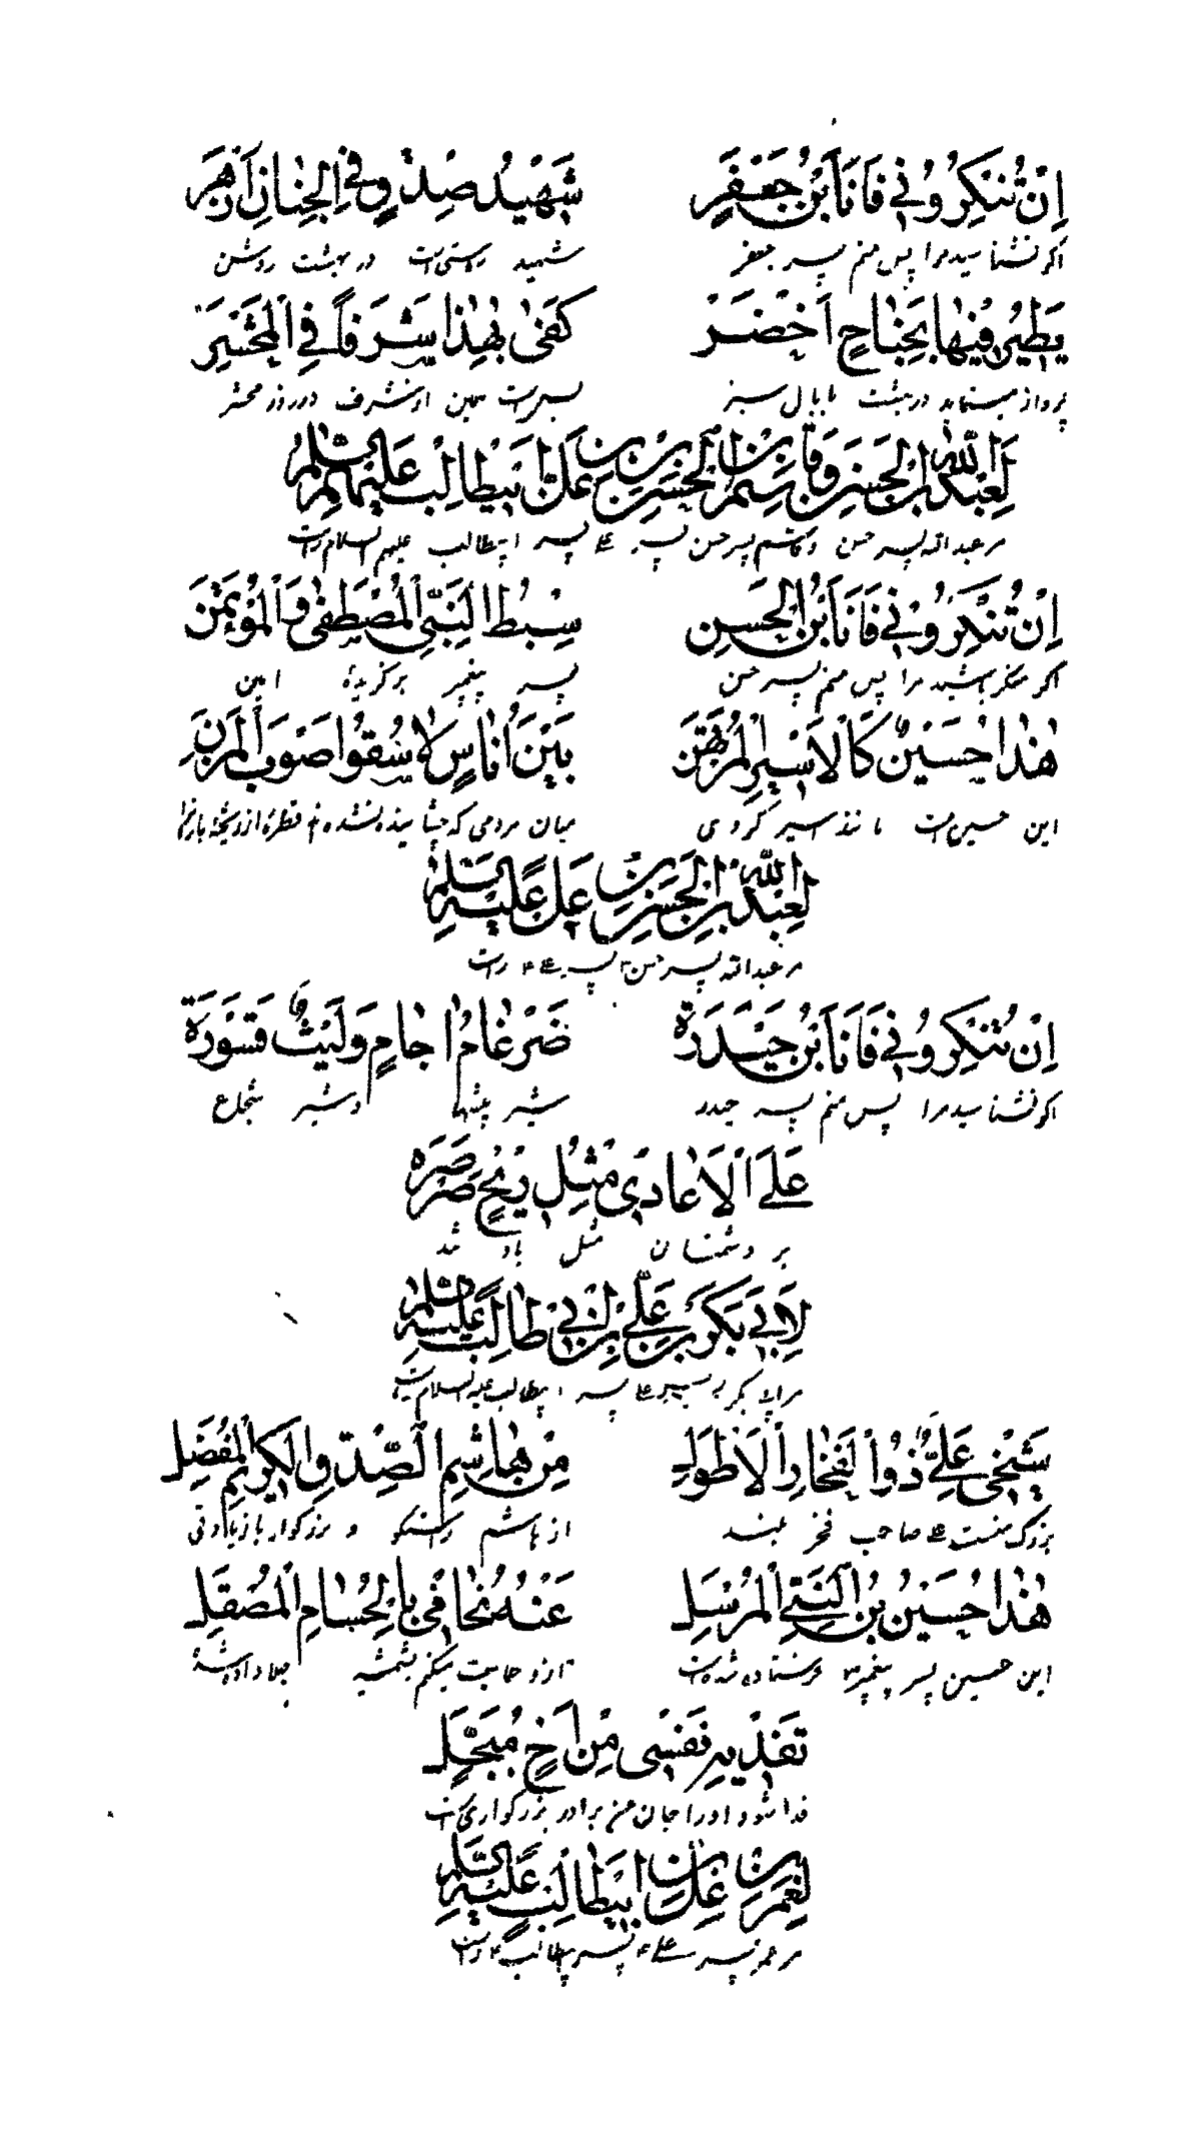 اِنْ تُنْكِرُوْنِي فَاَنَا ابْنُ جَعْفَرٍ شَهِيْدُ صِدْقٍ فِي الْجِنَانِ اَزْهَرَ
اكر نشناسيد مرا پس منم پسر جعفر شهيد راستى است در بهشت روشن
يَطِيْرُ فِيْهَا بِجَنَاحٍ اَخْضَرٍ كَفٰى بِهٰذَا شَرَفًا فِي الْمَحْشَرِ
پرواز مينمايد در بهشت با بال سبز بس است همين از شرف در روز محشر
لِعَبْدِ اللّٰهِ بْنِ الْحَسَنِ وَقَاسِمِ بْنِ الْحَسَنِ بْنِ عَلِيِّ بْنِ اَبِيطَالِبٍ عَلَيْهِمُ السَّلَامُ
مر عبد الله پسر حسن و قاسم پسر حسن پسر على پسر ابيطالب عليهم السلام راست
اِنْ تُنْكِرُوْنِي فَاَنَا ابْنُ الْحَسَنِ سِبْطُ النَّبِيِّ الْمُصْطَفٰى وَالْمُؤْتَمَنِ
اكر منكر باشيد مرا پس منم پسر حسن پسر پيغمبر بركزيدهٔ امين
هٰذَا حُسَيْنٌ كَالْاَسِيْرِ الْمُرْتَهَنِ بَيْنَ اُنَاسٍ لَا سُقُوا صَوْبَ الْمُزَنِ
اين حسين است مانند اسير كروى ميان مردمى كه چشانيده نشده اند قطرهٔ از ريختهٔ باران
لِعَبْدِ اللّٰهِ بْنِ الْحَسَنِ بْنِ عَلِيٍّ عَلَيْهِ السَّلَامُ
مر عبد الله پسر حسن پسر على راست
اِنْ تُنْكِرُوْنِي فَاَنَا ابْنُ حَيْدَرَةَ ضَرْغَامُ اٰجَامٍ وَلَيْثٌ قَسْوَرَةٌ
اكر نشناسيد مرا پس منم پسر حيدر شير بيشها و شير شجاع
عَلَى الْاَعَادِيْ مِثْلِ رِيْحٍ صَرْصَرَةٍ
بر دشمنان مثل باد تند
لِاَبِيْ بَكْرِ بْنِ عَلِيِّ بْنِ اَبِيْ طَالِبٍ عَلَيْهِ السَّلَامُ
مر ابى بكر پسر على پسر ابيطالب عليه السلام راست
شَيْخِيْ عَلِيٌّ ذُو الْفَخَارِ الْاَطْوَلِ مِنْ هَاشِمِ الصِّدْقِ الْكَرِيْمِ الْمُفْضِلِ
بزرك منست على صاحب فخر بلند از هاشم راستكو و بزركوار با زيادتى
هٰذَا حُسَيْنُ بْنُ النَّبِيِّ الْمُرْسَلِ عَنْهُ نُحَامِيْ بِالْحُسَامِ الْمُصْقَلِ
اين حسين پسر پيغمبر فرستاده شده است از او حمايت ميكنم بشمشير جلا داده شده
تَفْدِيْهِ نَفْسِيْ مِنْ اَخٍ مُبَجَّلِ
فدا شود او را جان من برادر بزركوارى است
لِعُمَرَ بْنِ عَلِيِّ بْنِ اَبِيْطَالِبٍ عَلَيْهِ السَّلَامُ
مر عمر پسر على پسر ابيطالب راست